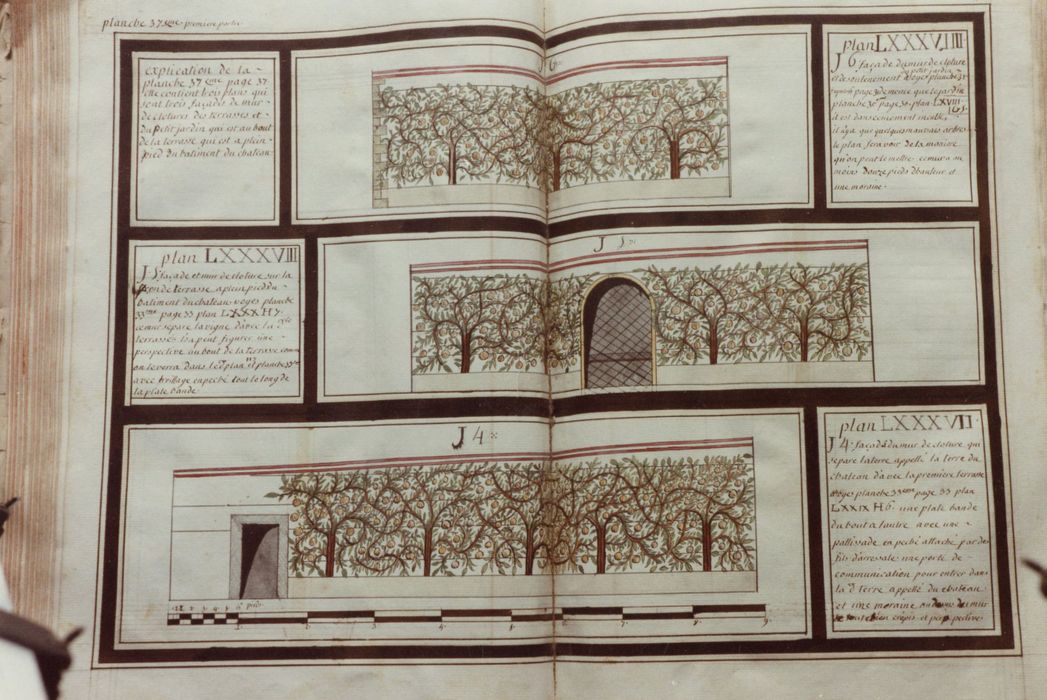 planche 37eme premiere partie
explication de la
planche 37 eme page 37
elle contient trois plans qui
sont trois façades de mur
de clotures des terrasses et
du petit jardin qui est au bout
de la terrasse qui est a plein
pied du batiment du chateau
J 6
plan LXXXVIIII
J 6 façade du mur de cloture
du petit jardin
et de soutenement voyes planche 37
page 37 de meme que le jardin
planche 30 page 30 plan LXVIII
il est danscienement inculte
il n'y a que quelques mauvais arbres
le plan fera voir de la maniere
qu'on peut le mettre ce mur a au
moins douze pieds d'hauteur et
une moraine
plan LXXXVIII
J 5 façade et mur de cloture sur la
seconde terrasse a plein pied du
batiment du chateau voyes planche
33eme page 33 plan LXXX H 7
ce mur separe la vigne d'avec la de
terrasse il a peut figurer une
perspective au bout de la terrasse comme
on le verra dans le plan et planche 37
avec trillage en peché tout le long de
la plate bande
J 5
J 4
plan LXXXVII
J 4 façade du mur de cloture qui
separe la terre appellé la terre du
chateau d'avec la premiere terrasse
voyes planche 33eme page 33 plan
LXXIX H 6 une plate bande
du bout a l'autre avec une
pallissade en peché attaché par des
fils d'arressate une porte de
communication pour entrer dans
la de terre appellé du chateau
et une moraine au dessus du mur
le tout bien crepis et perspectives
6 pieds
1 2 3 4 5 6 7 8 9